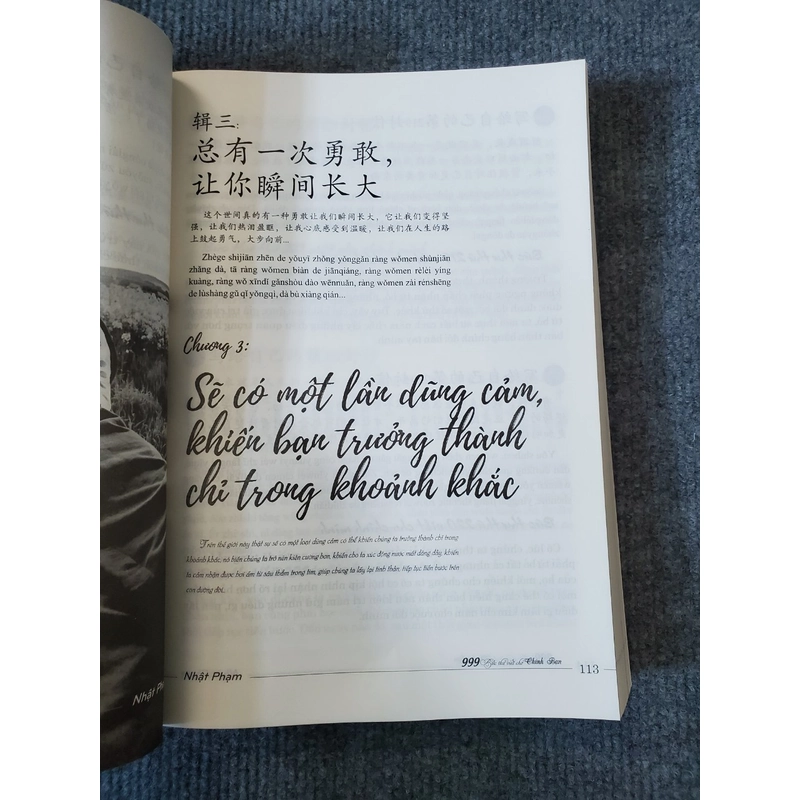 辑三:
总有一次勇敢，
让你瞬间长大
这个世间真的有一种勇敢让我们瞬间长大，它让我们变得坚
强，让我们热泪盈眶，让我心底感受到温暖，让我们在人生的路
上鼓起勇气，大步向前...
Zhège shìjiān zhēn de yǒuyī zhǒng yǒnggǎn ràng wǒmen shùnjiān
zhǎng dà, tā ràng wǒmen biàn de jiānqiáng, ràng wǒmen rèlèi yíng
kuàng, ràng wǒ xīndǐ gǎnshòu dào wēnnuǎn, ràng wǒmen zài rénshēng
de lùshàng gǔ qǐ yǒngqì, dà bù xiàng qián...
Chương 3:
Sẽ có một lần dũng cảm,
khiến bạn trưởng thành
chỉ trong khoảnh khắc
Trên thế giới này thật sự sẽ có một loại dũng cảm có thể khiến chúng ta trưởng thành chỉ trong
khoảnh khắc, nó khiến chúng ta trở nên kiên cường hơn, khiến cho ta xúc động nước mắt dâng đầy, khiến
ta cảm nhận được hơi ấm từ sâu thẳm trong tim, giúp chúng ta lấy lại tinh thần, tiếp tục tiến bước trên
con đường đời.
Nhật Phạm
999 Bức thư viết cho Chính Bạn
113
Nhật Ph